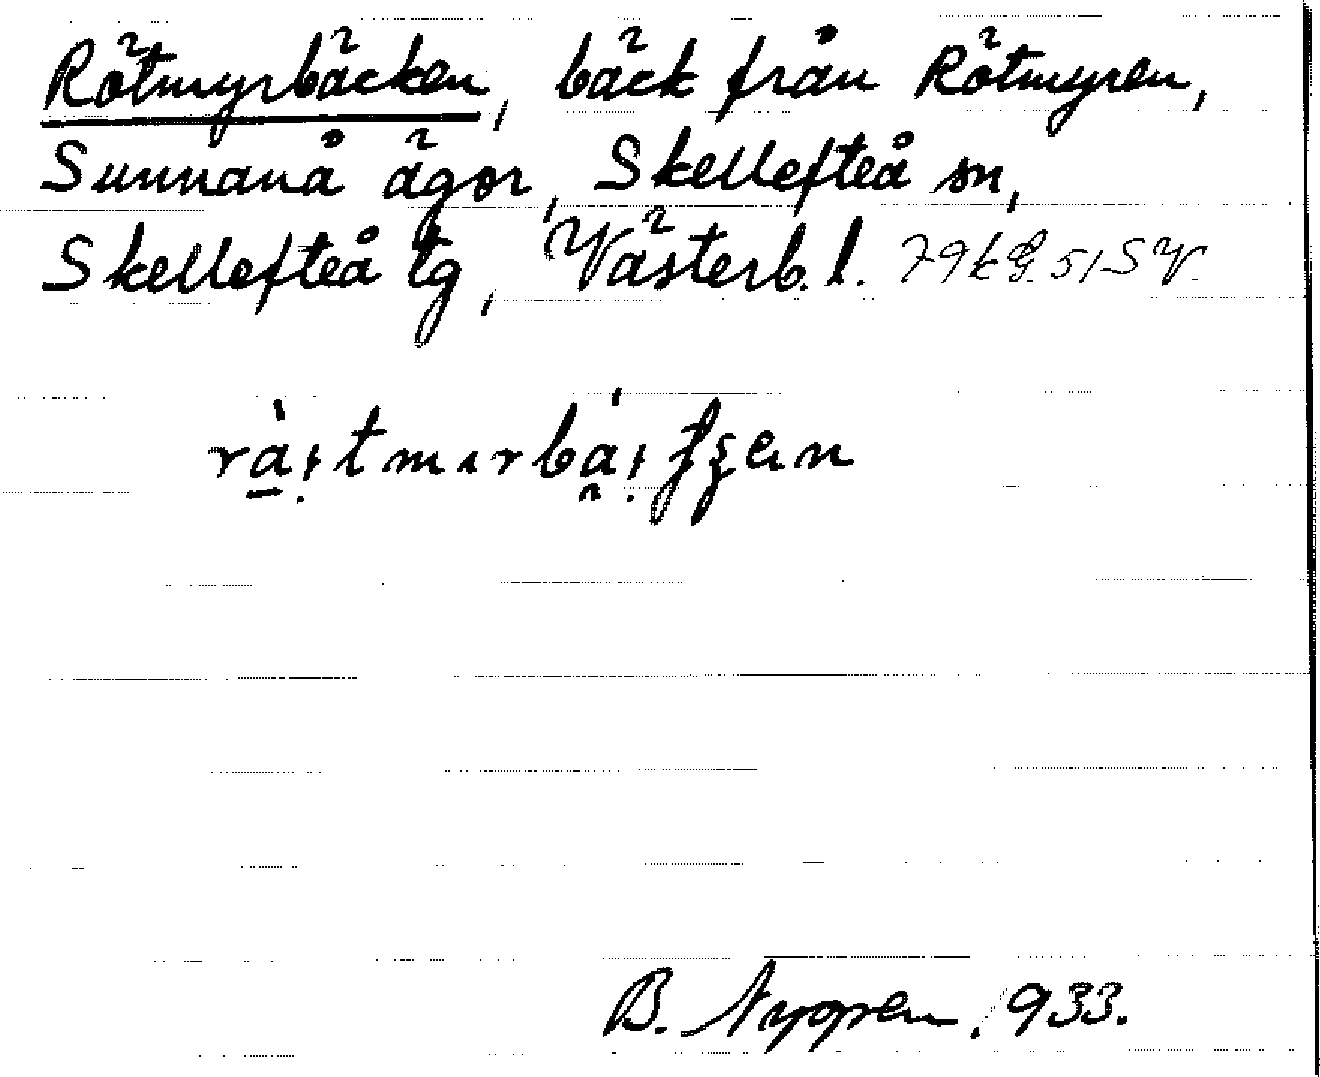 Rötmyrbäcken, bäck från Rötmyren,
Sunnanå ägor, Skellefteå sn,
Skellefteå tg, Västerb. l.
B. Nygren. 1933.